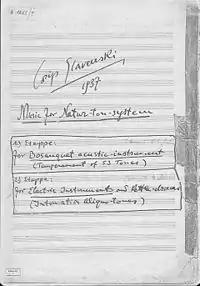 Josip Slavenski
1937
Music for Natur-ton-system
1) Etappe:
for Bosanquet-acustic-instrument
(Temperament of 53 Tones)
2) Etappe:
for Electric Instruments and
(Intonation Aliquo-tones)